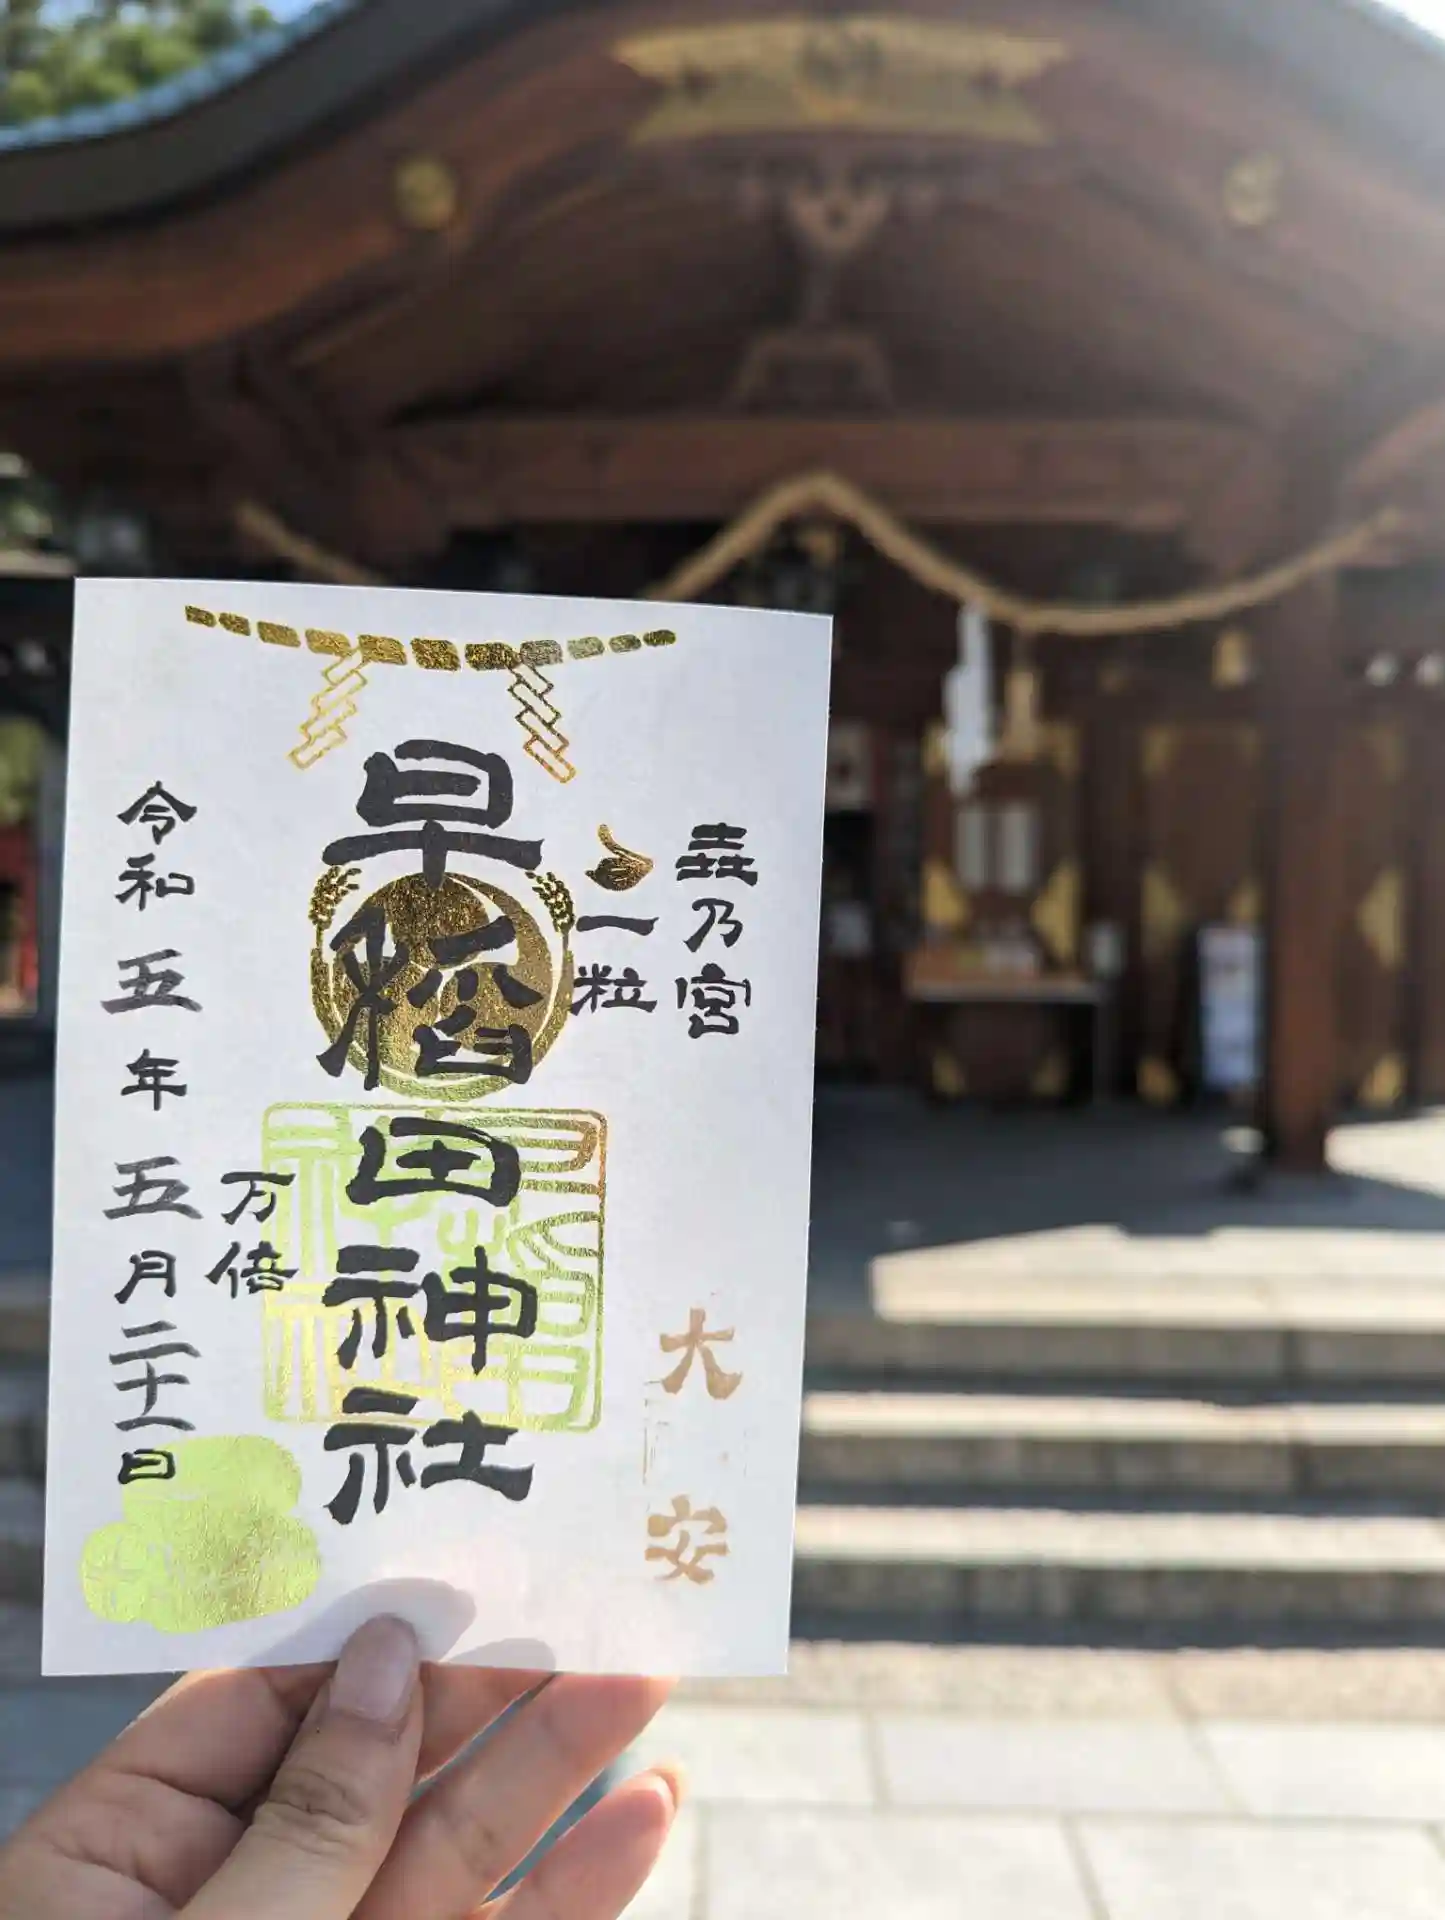 壵乃宮
大安
一粒
早稲田神社
万倍
令和五年五月二十一日